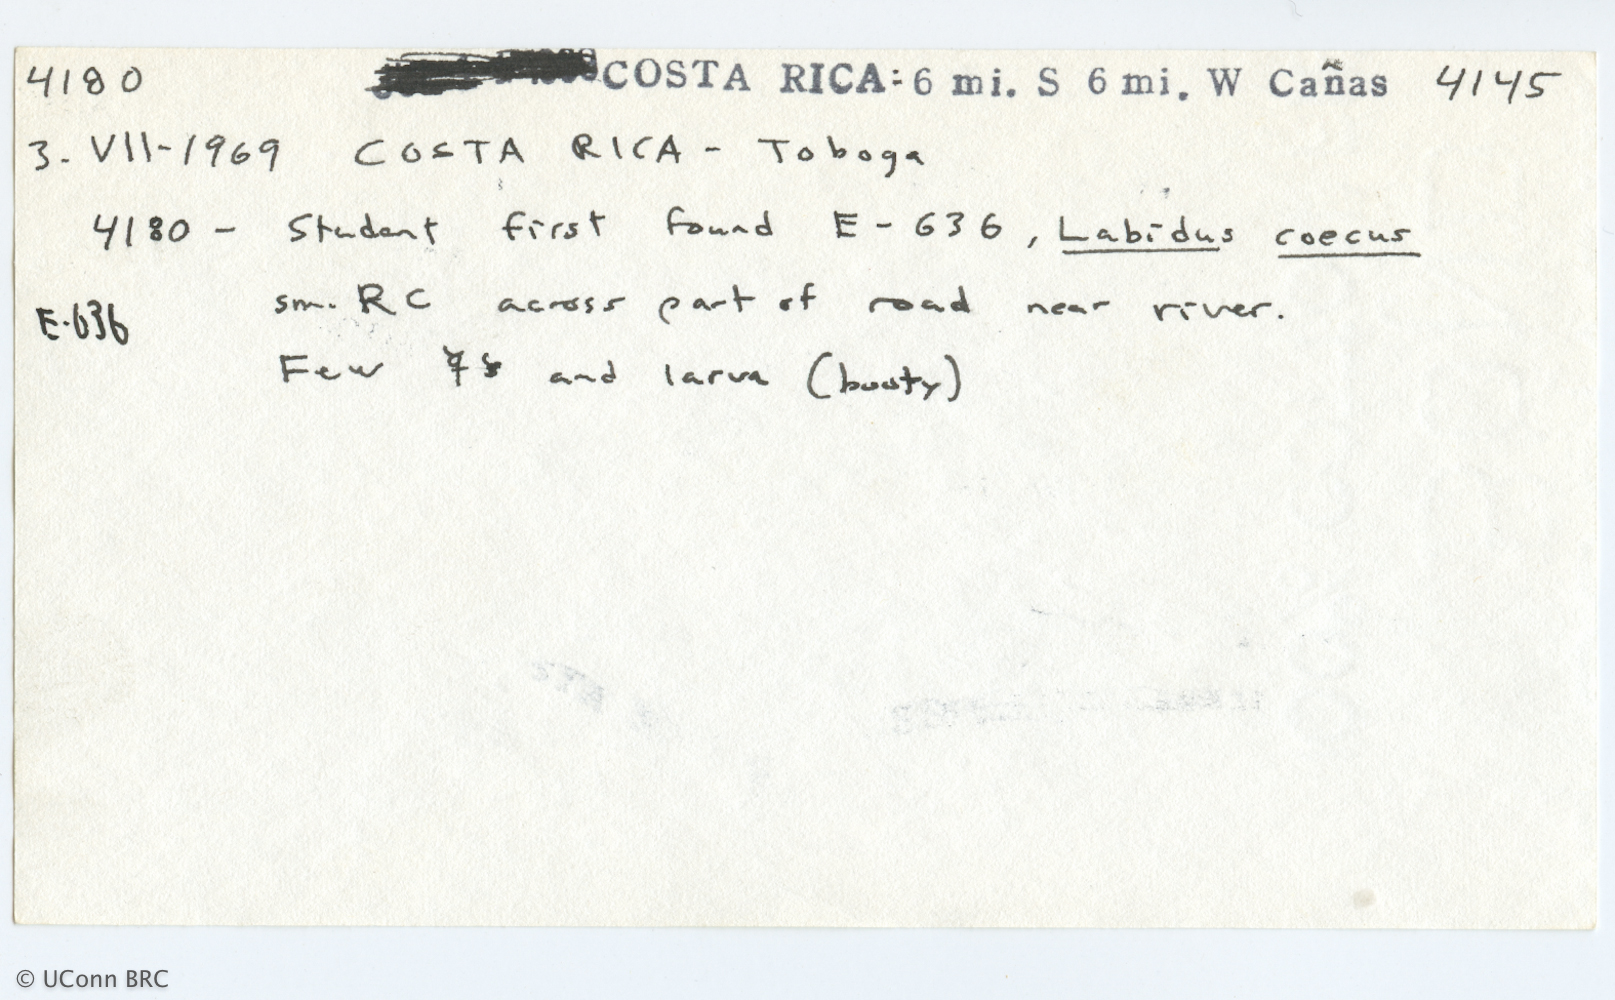 4180 COSTA RICA: 6 mi. S 6 mi. W Cañas 4145
3. VII-1969 COSTA RICA - Toboga
4180 - Student first found E-636, Labidus coecus
E-636 sm. RC across part of road near river.
Few and larva (booty)
© UConn BRC